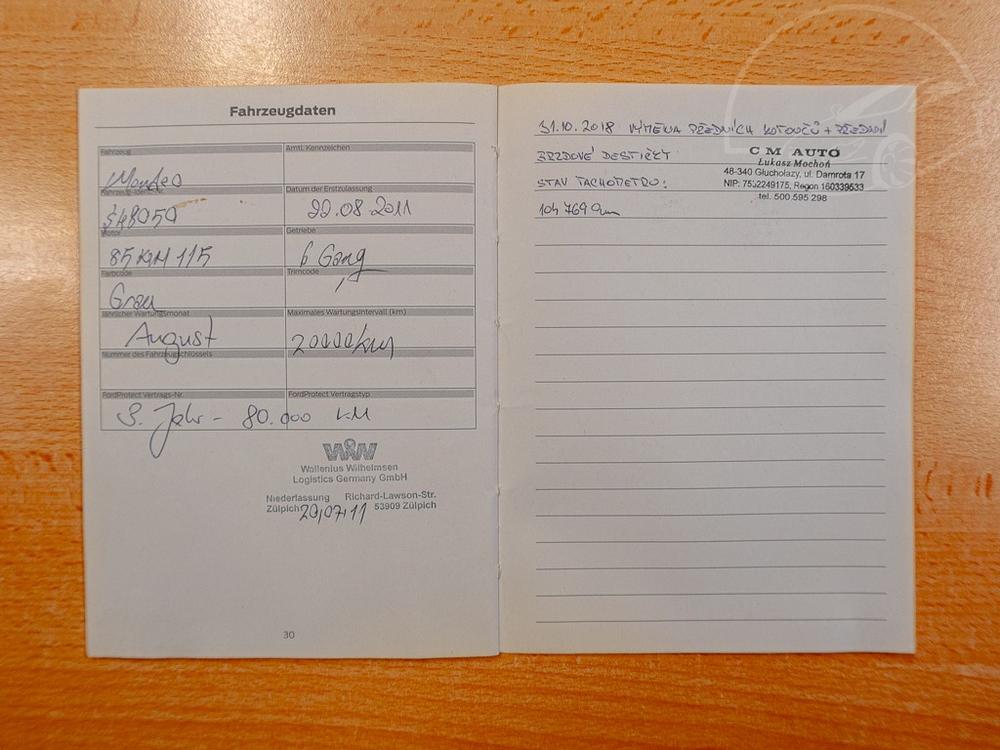 Fahrzeugdaten
Fahrzeug
Amtl. Kennzeichen
Mondeo
Datum der Erstzulassung
S48050
22.08.2011
Motor
Getriebe
85 KW 115
6 Gang
Farbcode
Trimcode
Grau
Jährlicher Wartungsmonat
Maximales Wartungsintervall (km)
August
20000 km
Nummer des Fahrzeugschlüssels
FordProtect Vertrags-Nr.
FordProtect Vertragstyp
3. Jahr - 80.000 KM
WW
Wallenius Wilhelmsen
Logistics Germany GmbH
Niederlassung Richard-Lawson-Str.
Zülpich 53909 Zülpich
20,07,11
30
31.10.2018 VÝMĚNA PŘEDNÍCH KOTOUČŮ + PŘEDNÍ
BRZDOVÉ DESTIČKY
STAV TACHOMETRU:
104 769
C M AUTO
Łukasz Mochoń
48-340 Głuchołazy, ul. Damrota 17
NIP: 7532249175, Regon 160339533
tel. 500 595 298